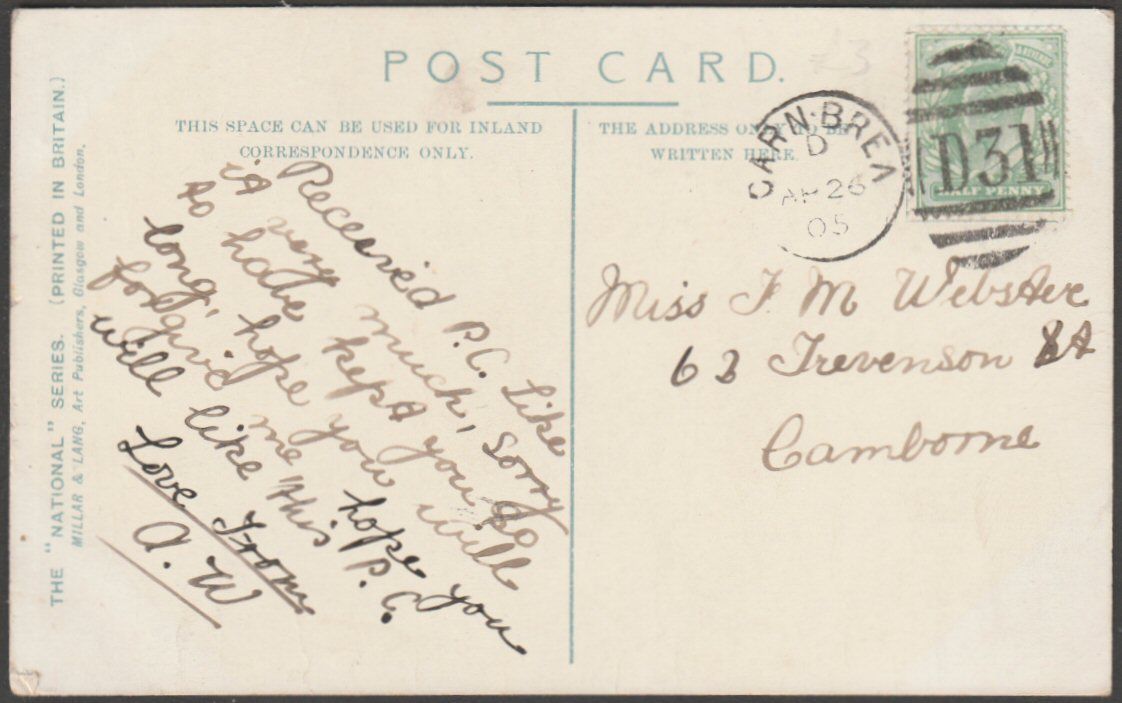 POST CARD.
THIS SPACE CAN BE USED FOR INLAND
CORRESPONDENCE ONLY.
THE ADDRESS ONLY TO BE
WRITTEN HERE.
THE "NATIONAL" SERIES. (PRINTED IN BRITAIN.)
MILLAR & LANG, Art Publishers, Glasgow and London.
£3
CARN·BREA
D
AP 26
05
D31
HALF PENNY
Received P.C. Like
it very much, Sorry
to have kept you so
long, hope you will
forgive me hope you
will like this P.C.
Love From
A.W
Miss F M Webster
63 Trevenson St
Camborne